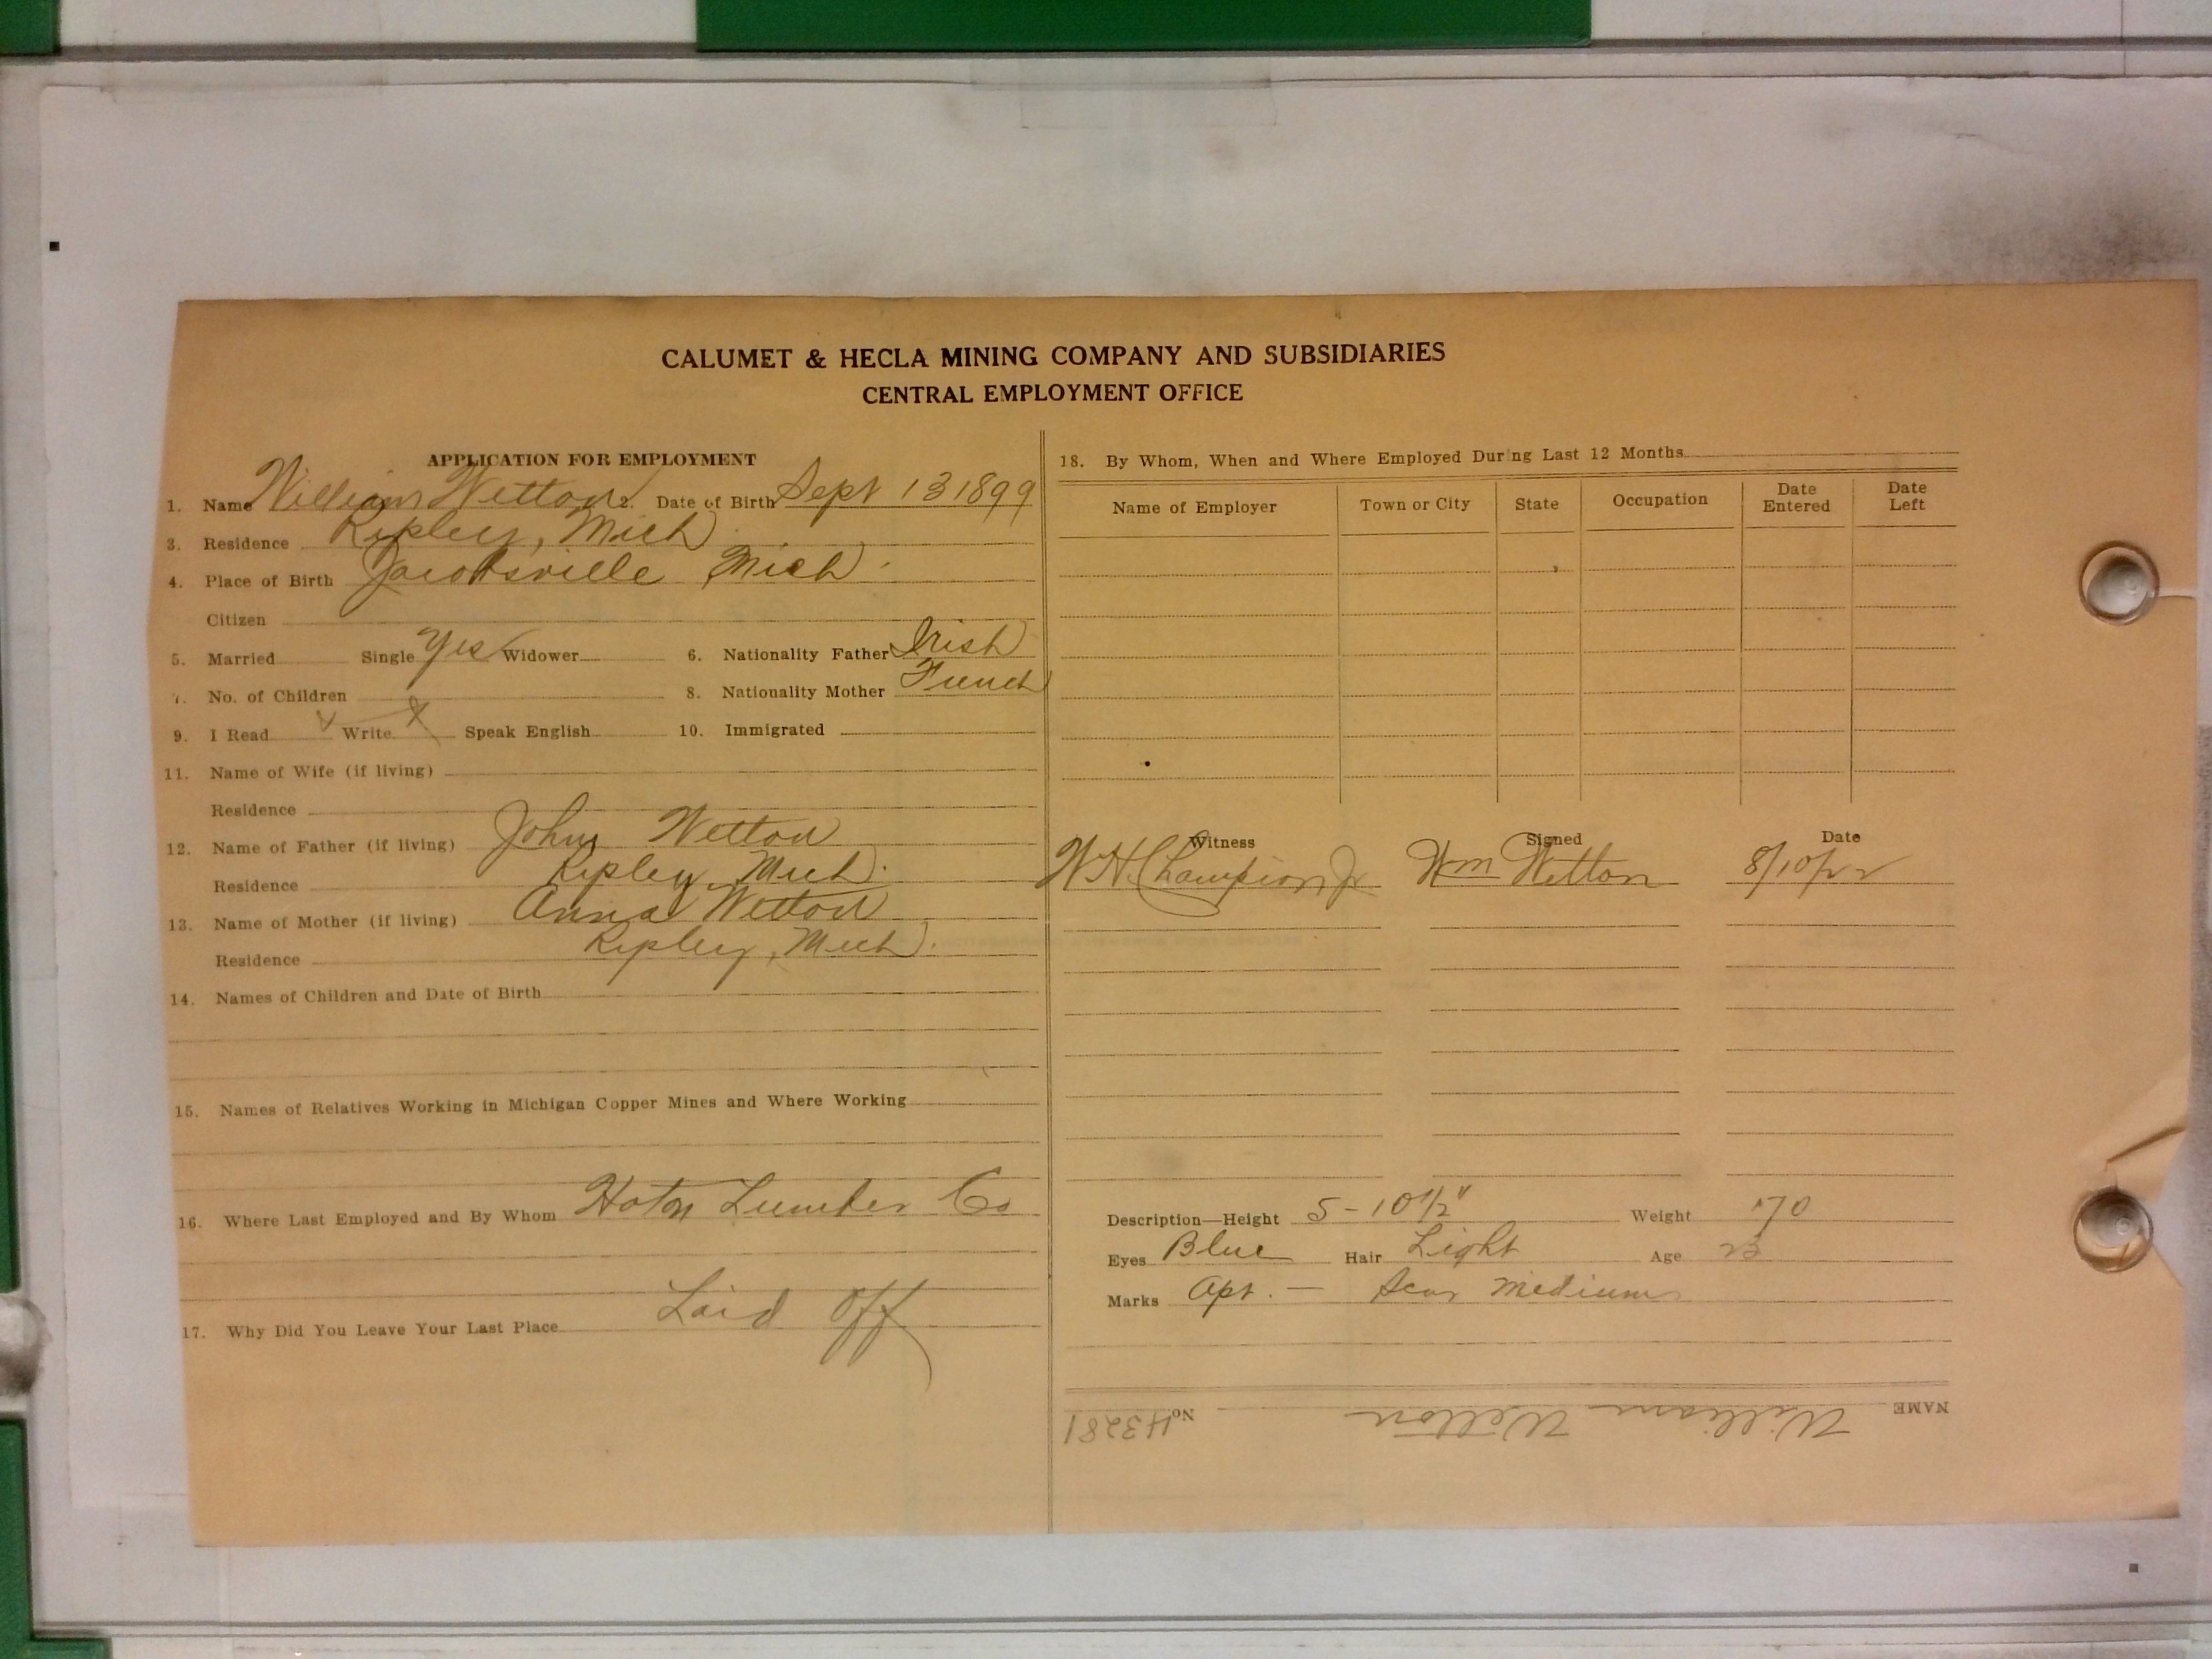 CALUMET & HECLA MINING COMPANY AND SUBSIDIARIES
CENTRAL EMPLOYMENT OFFICE
APPLICATION FOR EMPLOYMENT
1. Name William Wetton 2. Date of Birth Sept 13 1899
3. Residence Ripley, Mich
4. Place of Birth Jacobsville Mich.
Citizen
5. Married Single Yes Widower 6. Nationality Father Irish
7. No. of Children 8. Nationality Mother French
9. I Read x Write x Speak English 10. Immigrated
11. Name of Wife (if living)
Residence
12. Name of Father (if living) John Wetton
Residence Ripley, Mich.
13. Name of Mother (if living) Anna Wetton
Residence Ripley, Mich.
14. Names of Children and Date of Birth
15. Names of Relatives Working in Michigan Copper Mines and Where Working
16. Where Last Employed and By Whom Hoton Lumber Co
17. Why Did You Leave Your Last Place Laid Off
18. By Whom, When and Where Employed During Last 12 Months
Name of Employer Town or City State Occupation Date Entered Date Left
Witness Signed Date
W H Champion Jr Wm Wetton 8/10/22
Description—Height 5-10 1/2" Weight 170
Eyes Blue Hair Light Age 23
Marks Apt. — Scar Medium
NAME William Wetton No. H3281